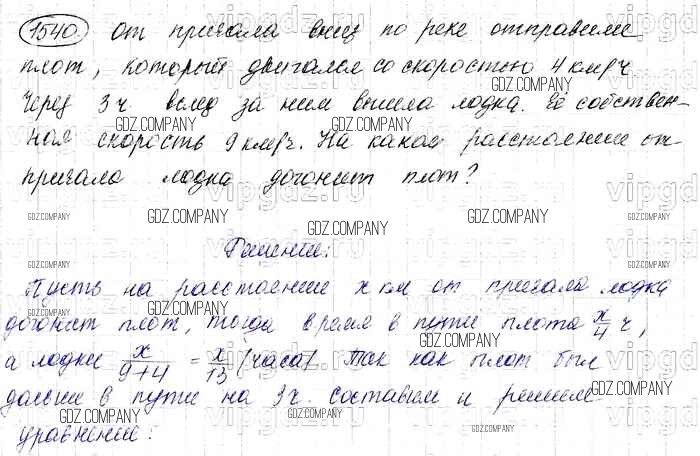 1540. От причала вниз по реке отправили
плот, который двигался со скоростью 4 км/ч
Через 3 ч вслед за ним вышла лодка. Её собствен-
ная скорость 9 км/ч. На каком расстоянии от
причала лодка догонит плот?
Решение:
Пусть на расстоянии x км от причала лодка
догонит плот, тогда время в пути плота x/4 ч,
а лодки x/(9+4) = x/13 (часа) Так как плот был
дольше в пути на 3 ч. составим и решим
уравнение: